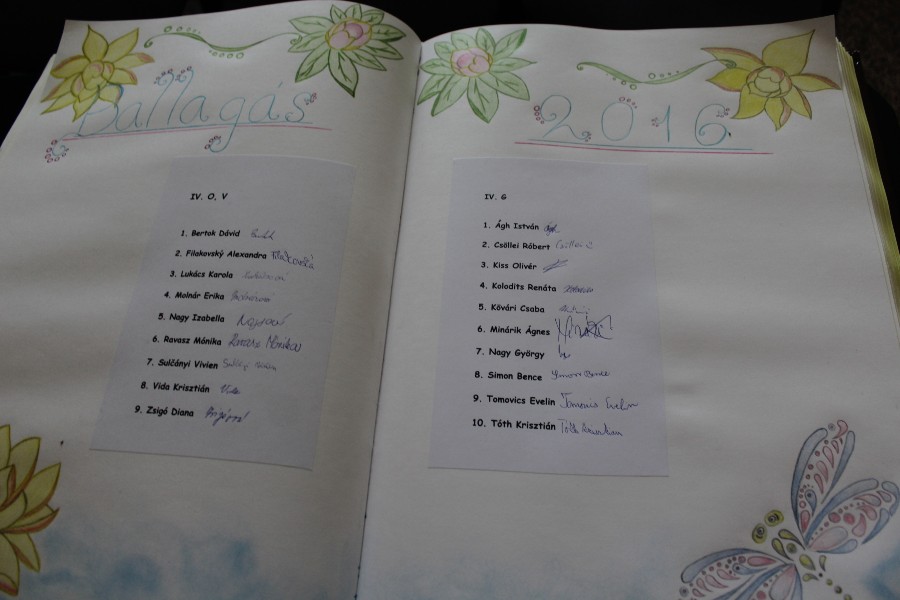 Ballagás
IV. O, V
1. Bertok Dávid
2. Filakovský Alexandra Filakovská
3. Lukács Karola
4. Molnár Erika
5. Nagy Izabella
6. Ravasz Mónika Ravasz Mónika
7. Sulčányi Vivien
8. Vida Krisztián Vida
9. Zsigó Diana
2016
IV. G
1. Ágh István Ágh
2. Csöllei Róbert
3. Kiss Olivér
4. Kolodits Renáta
5. Kővári Csaba
6. Minárik Ágnes
7. Nagy György
8. Simon Bence Simon Bence
9. Tomovics Evelin Tomovics Evelin
10. Tóth Krisztián Tóth Krisztian